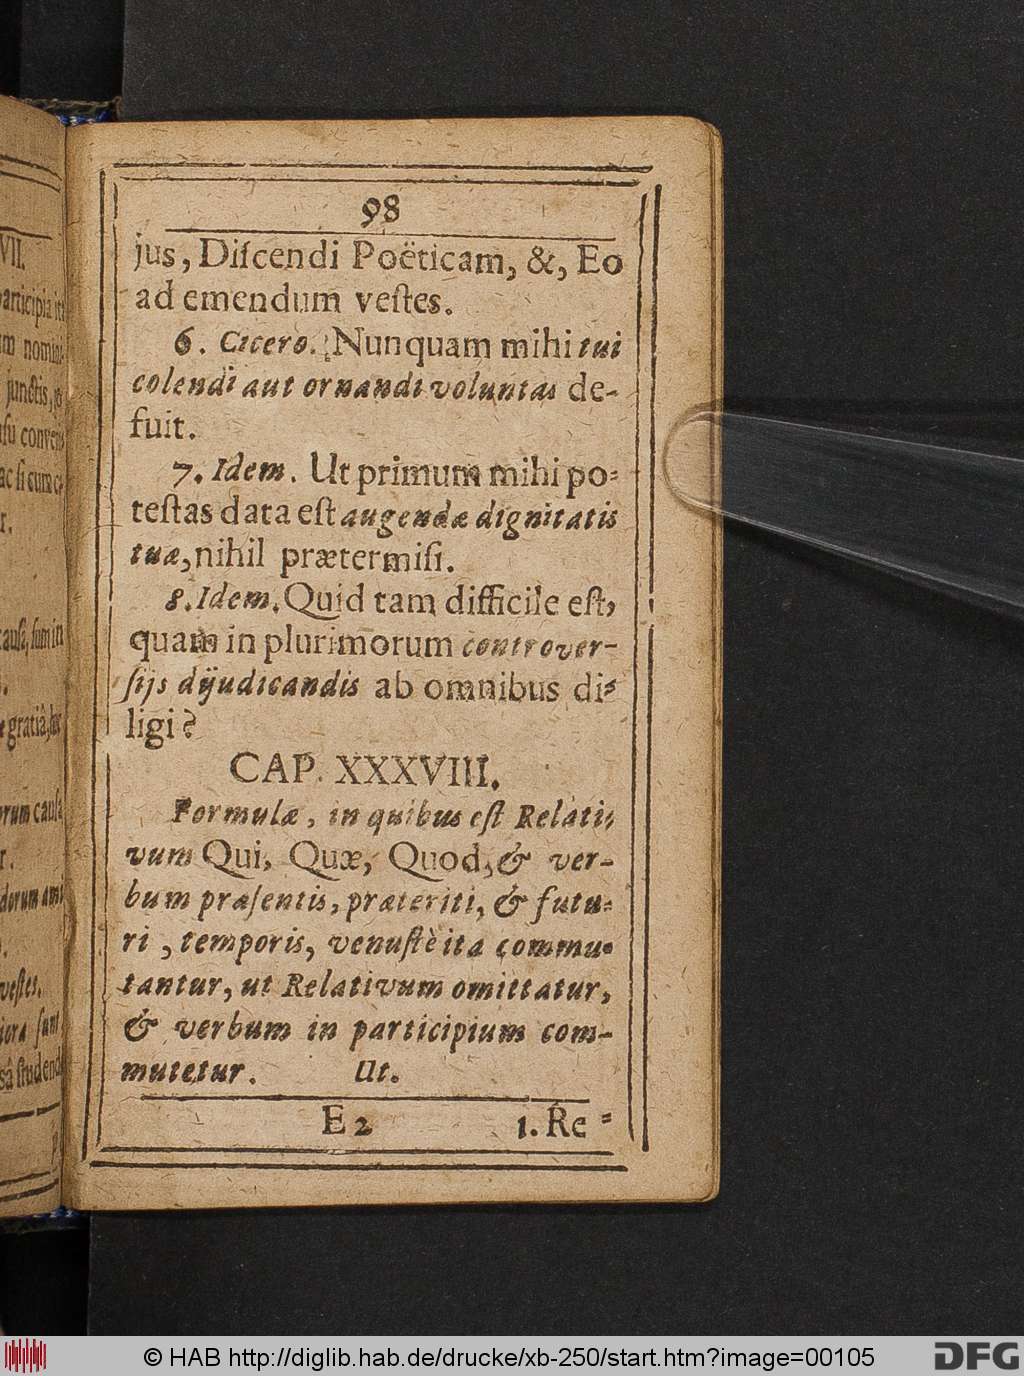 98
jus, Diſcendi Poëticam, &, Eo
ad emendum veſtes.
6. Cicero. Nunquam mihi tui
colendi aut ornandi voluntas de-
fuit.
7. Idem. Ut primum mihi po-
teſtas data eſt augendæ dignitatis
tuæ, nihil prætermiſi.
8. Idem. Quid tam difficile eſt,
quam in plurimorum controver-
ſijs dijudicandis ab omnibus di-
ligi?
CAP. XXXVIII.
Formulæ, in quibus eſt Relati-
vum Qui, Quæ, Quod, & ver-
bum præſentis, præteriti, & futu-
ri, temporis, venuſtè ita commu-
tantur, ut Relativum omittatur,
& verbum in participium com-
mutetur. Ut.
E 2 1. Re-
VII.
participia
nomini
junctis,
cauſa
veſtes.
© HAB http://diglib.hab.de/drucke/xb-250/start.htm?image=00105
DFG